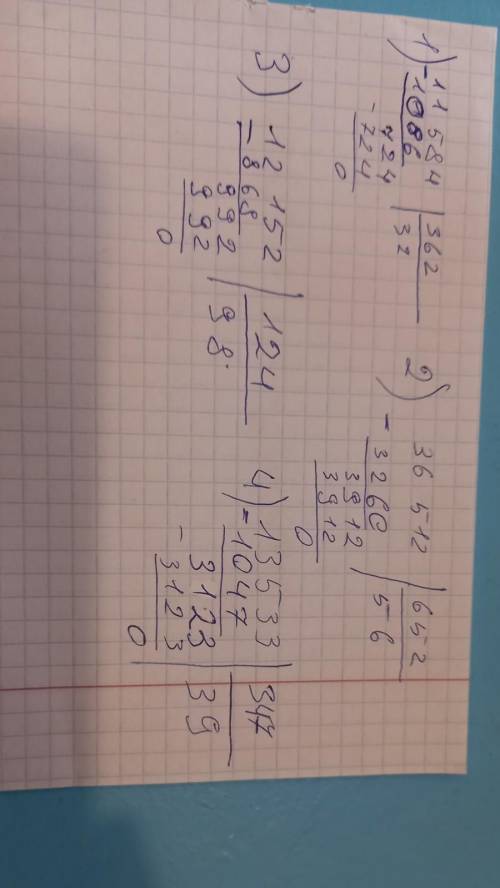 1) 11 584 | 362
- 1086 | 32
724
- 724
0
2) 36 512 | 652
- 3260 | 56
3912
3912
0
3) 12 152 | 124
- 868 | 98
992
992
0
4) 13533 | 347
- 1047 | 39
3123
- 3123
0